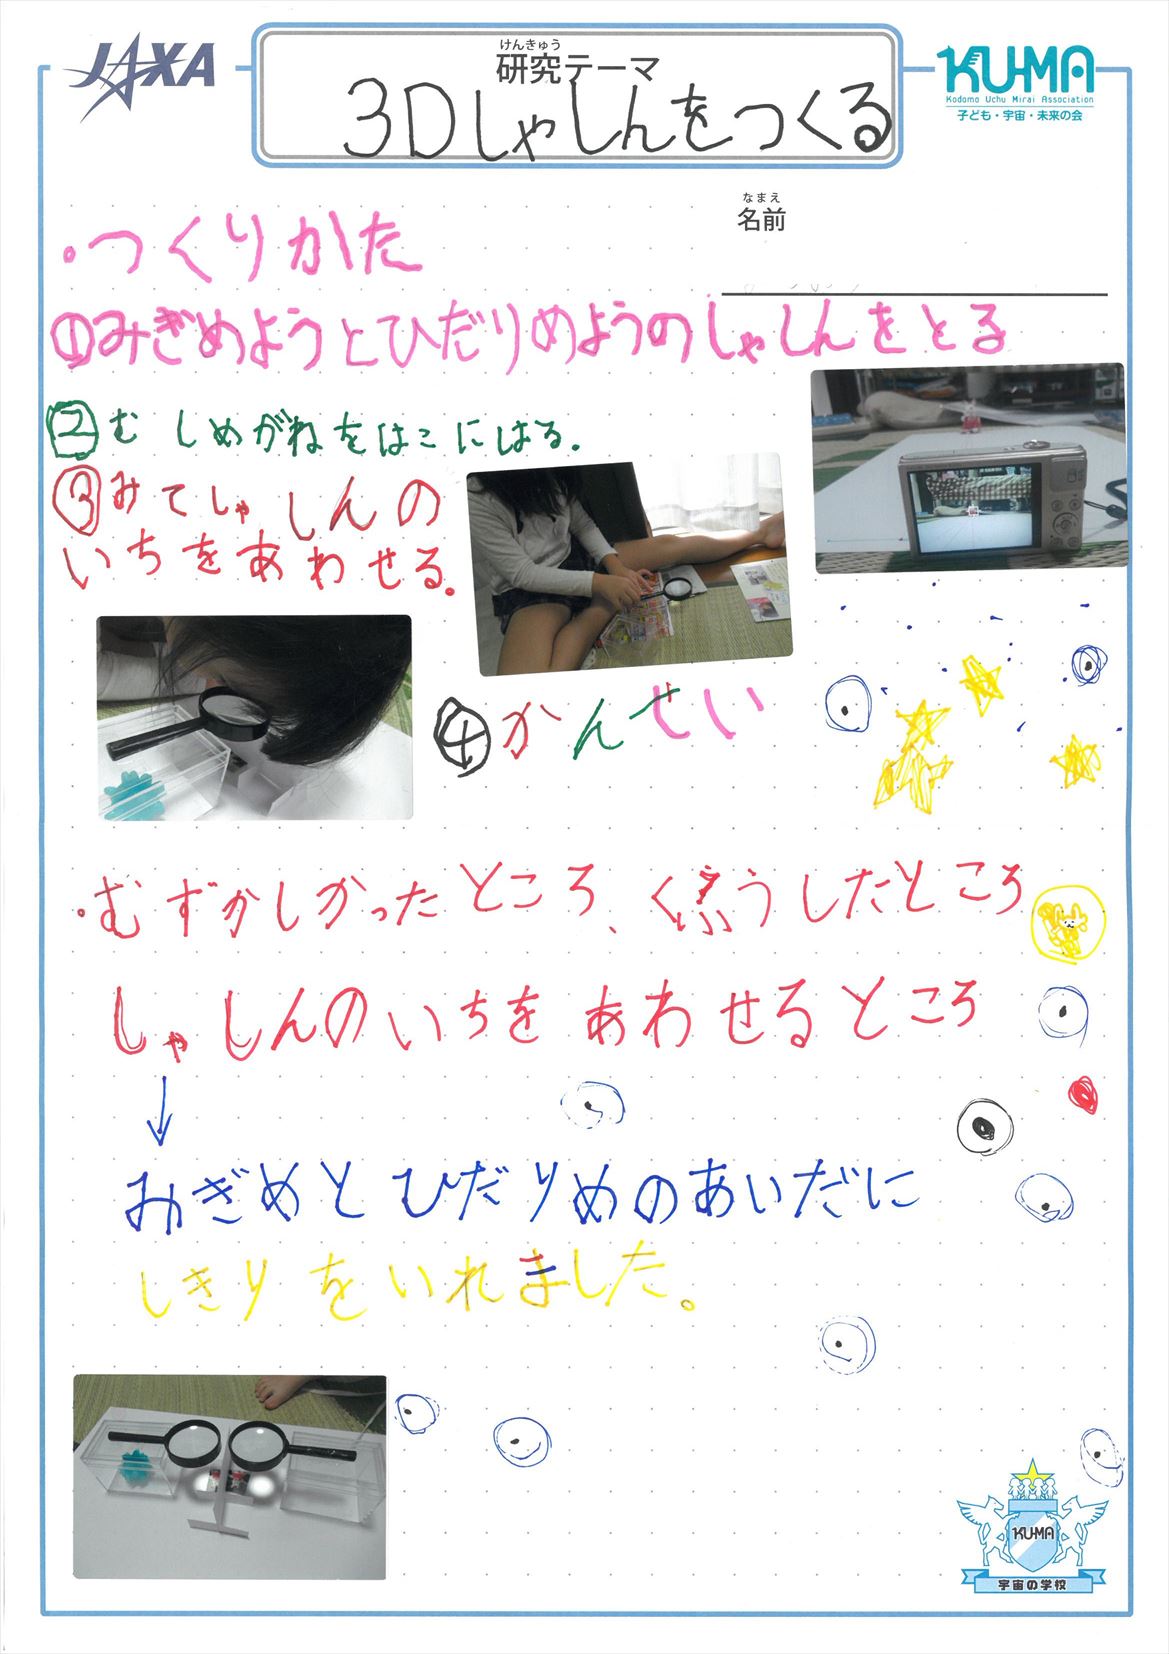 JAXA
けんきゅう
研究テーマ
KU-MA
Kodomo Uchu Mirai Association
子ども・宇宙・未来の会
3Dしゃしんをつくる
なまえ
名前
・つくりかた
①みぎめようとひだりめようのしゃしんをとる
②むしめがねをはこにはる.
③みてしゃしんの
いちをあわせる。
④かんせい
・むずかしかったところ、くふうしたところ
しゃしんのいちをあわせるところ
↓
みぎめとひだりめのあいだに
しきりをいれました。
KU-MA
宇宙の学校